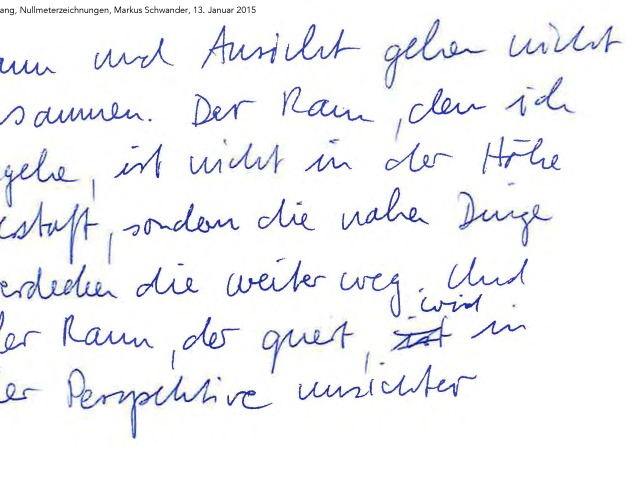 ang, Nullmeterzeichnungen, Markus Schwander, 13. Januar 2015
aum und Ansicht gehen nicht
sammen. Der Raum, den ich
gehe, ist nicht in der Höhe
estaft, sondern die nahen Dinge
erdecken die weiter weg. Und
wird
der Raum, der quert, ist in
er Perspektive unsichter